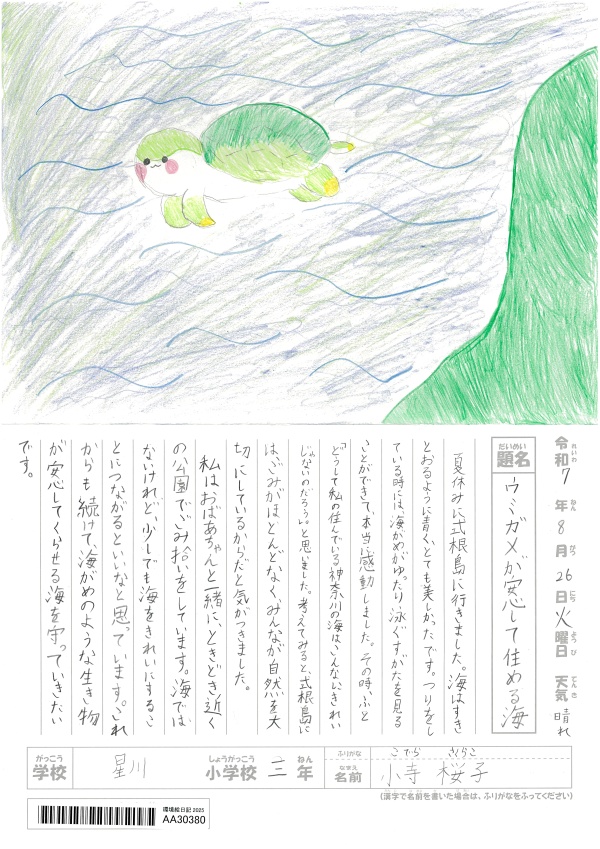 令和7年8月26日火曜日 天気 晴れ
れいわ ねん がつ にち ようび てんき
だいめい
題名 ウミガメが安心して住める海
夏休みに式根島に行きました。海はすき
とおるように青く、とても美しかったです。つりをし
ている時には、海がめがゆったり泳ぐすがたを見る
ことができて、本当に感動しました。その時、ふと
「どうして私の住んでいる神奈川の海は、こんなにきれい
じゃないのだろう。」と思いました。考えてみると、式根島に
は、ごみがほとんどなく、みんなが自然を大
切にしているからだと気がつきました。
私はおばあちゃんと一緒に、ときどき近く
の公園でごみ拾いをしています。海では
ないけれど、少しでも海をきれいにするこ
とにつながるといいなと思っています。これ
からも続けて、海がめのような生き物
が安心してくらせる海を守っていきたい
です。
がっこう しょうがっこう ねん
学校 星川 小学校 三 年
ふりがな こでら さくらこ
なまえ
名前 小寺 桜子
(漢字で名前を書いた場合は、ふりがなをふってください)
環境絵日記 2025
AA30380